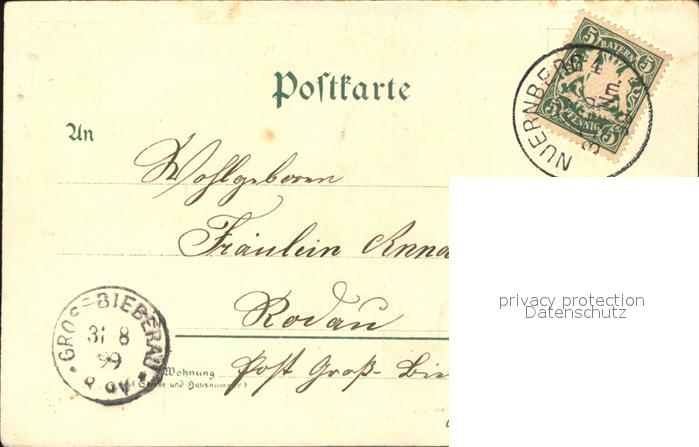 5 BAYERN 5
5 PFENNIG 5
NUERNBERG
Postkarte
An
Wohlgeboren
Fräulein Anna
Rodau
Post Groß-Bie
Wohnung
(Straße und Hausnummer)
GROSS-BIEBERAU
31 8
99
privacy protection
Datenschutz